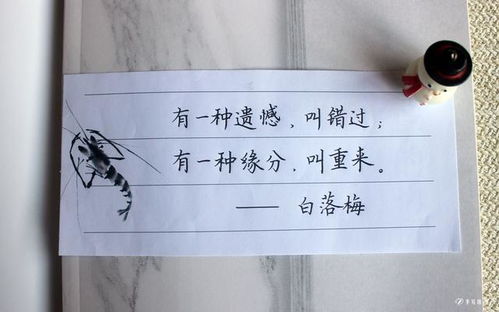 有一种遗憾，叫错过；
有一种缘分，叫重来。
—— 白落梅